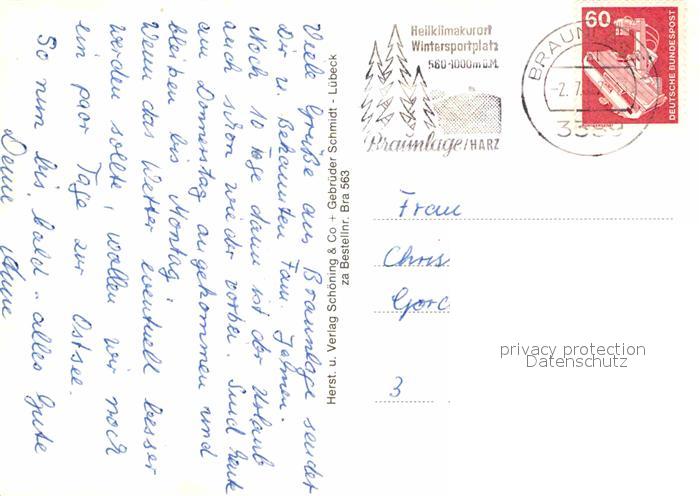 Viele Grüße aus Braunlage sendet
Dir u. Bekannten Fam.
Noch 10 Tage dann ist der Urlaub
auch schon wieder vorbei. Sind heute
am Donnerstag angekommen und
bleiben bis Montag.
Wenn das Wetter eventuell besser
werden sollte, wollen wir noch
ein paar Tage zur Ostsee.
So nun bis bald - alles Gute
Deine
Herst. u. Verlag Schöning & Co + Gebrüder Schmidt - Lübeck
za Bestellnr. Bra 563
Heilklimakurort
Wintersportplatz
560-1000m ü.M.
Braunlage/HARZ
60
DEUTSCHE BUNDESPOST
Frau
Chris
3
privacy protection
Datenschutz